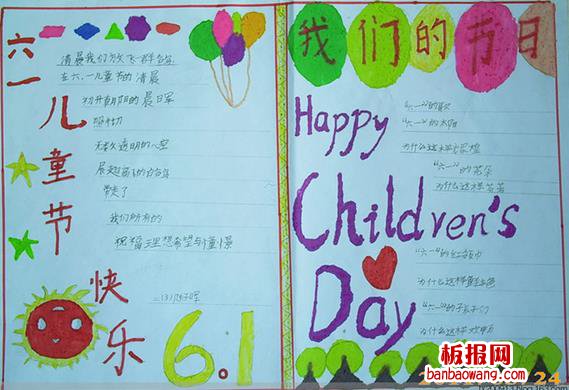 六一儿童节
快乐
清晨我们放飞一群白鸽
在六.一儿童节的清晨
初升朝阳的晨日军
照 切
无数透明的心里
晨起 的白鸽
带走了
我们所有的
祝福理想希望与憧憬
6.1
我们的节日
Happy
Children's
Day
"六一"的歌
"六一"的太阳
为什么这样 煌
"六一"的花朵
为什么这样
"六一"的红领巾
为什么这样鲜
"六一"的孩子们
为什么这样欢
板报网
www.banbaowang.com
24